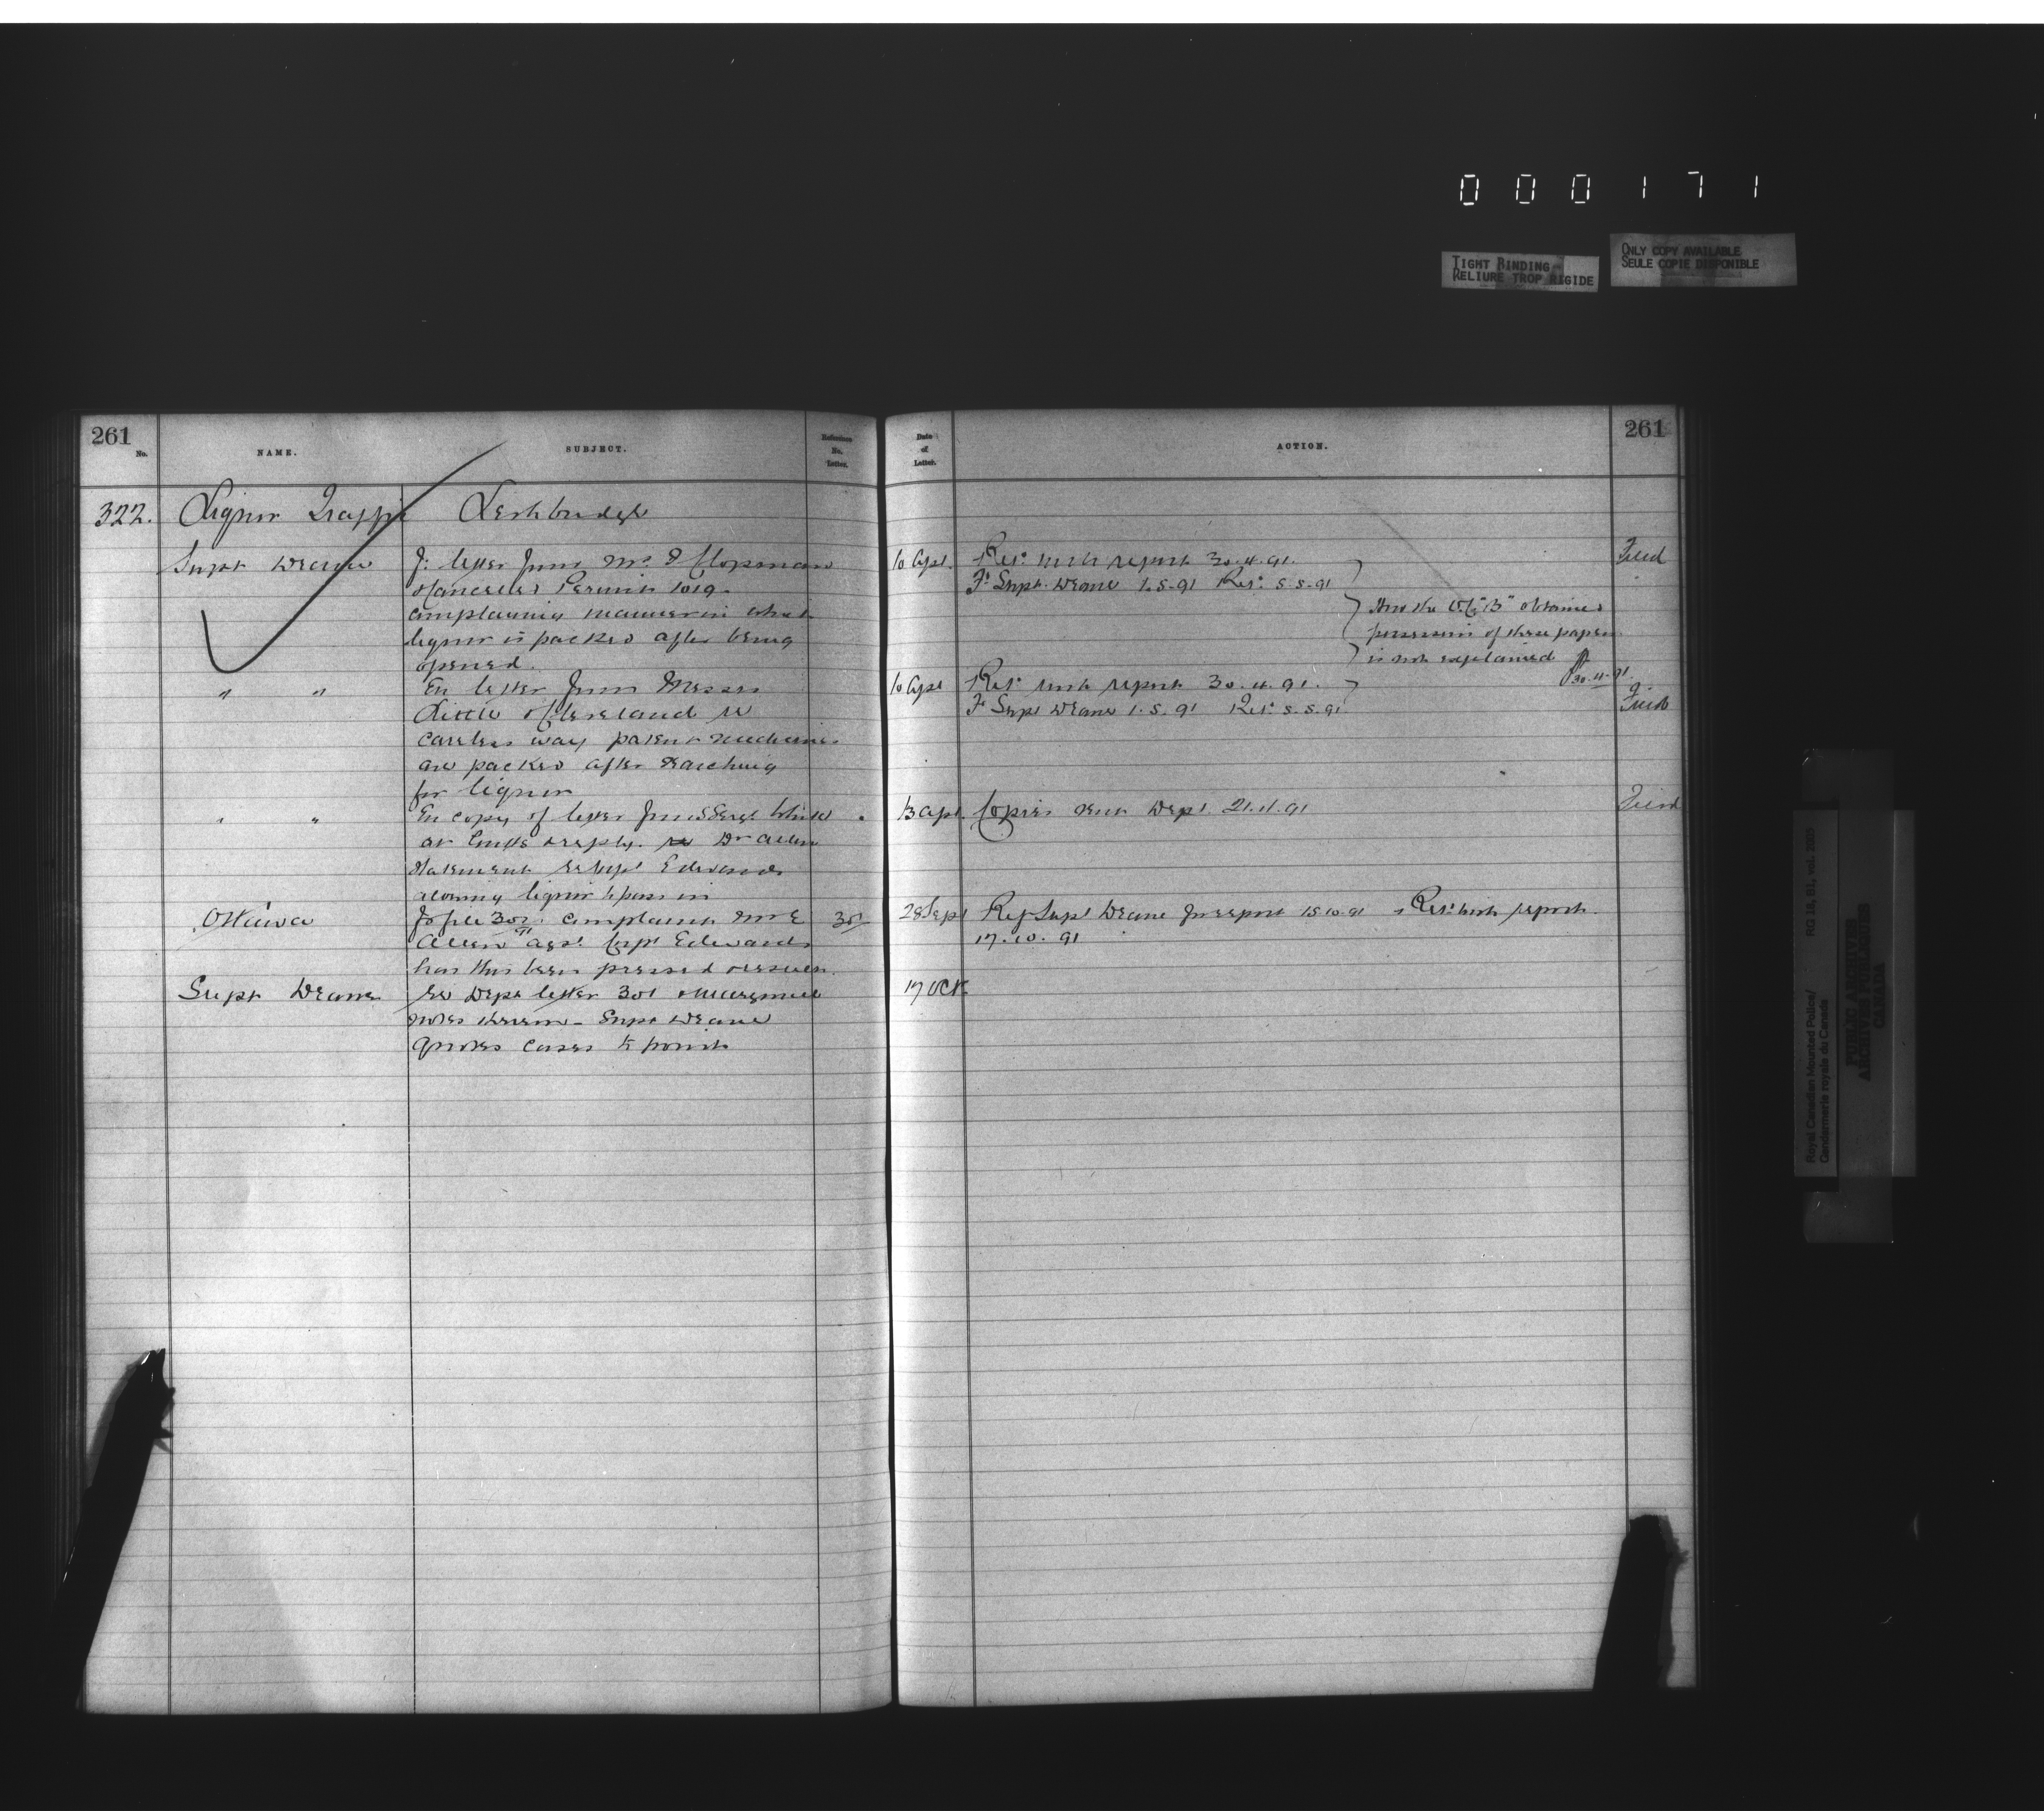 000171
TIGHT BINDING
RELIURE TROP RIGIDE
ONLY COPY AVAILABLE
SEULE COPIE DISPONIBLE
261
No.
NAME.
SUBJECT.
Reference No. Letter.
Date of Letter.
ACTION.
261
322. Liquor Traffic Lethbridge
Supt Deane
letter from Mr
Cancelled Permit 1019
complaining manner in which
liquor is packed after being
opened.
10 Apl. Retd with report 30.4.91.
Fd Supt. Deane 1.5.91 Retd 5.5.91
How the "B" obtained
possession of these papers
is not explained
30.4.91
Filed
" "
En letter from Messrs
Little & Cleveland re
careless way patent medicines
are packed after searching
for liquor
10 Apl Retd with report 30.4.91.
Fd Supt Deane 1.5.91 Retd 5.5.91
Filed
" "
En copy of letter from SSergt White
at Dr Allen
statement re Supt Edwards
allowing liquor to pass in
13 Apl. Copies sent Dept. 21.4.91
Filed
Ottawa
To file 302. complaint Mr E
Allen agst. Edwards
has this been pressed
301
28 Sept Ref Supt Deane for report 15.10.91 Retd with report
17.10.91
Supt Deane
re Dept letter 301
notes thereon - Supt Deane
quotes cases to point
17 Oct
Royal Canadian Mounted Police/
Gendarmerie royale du Canada
RG 18, B1, vol. 2085
PUBLIC ARCHIVES
ARCHIVES PUBLIQUES
CANADA